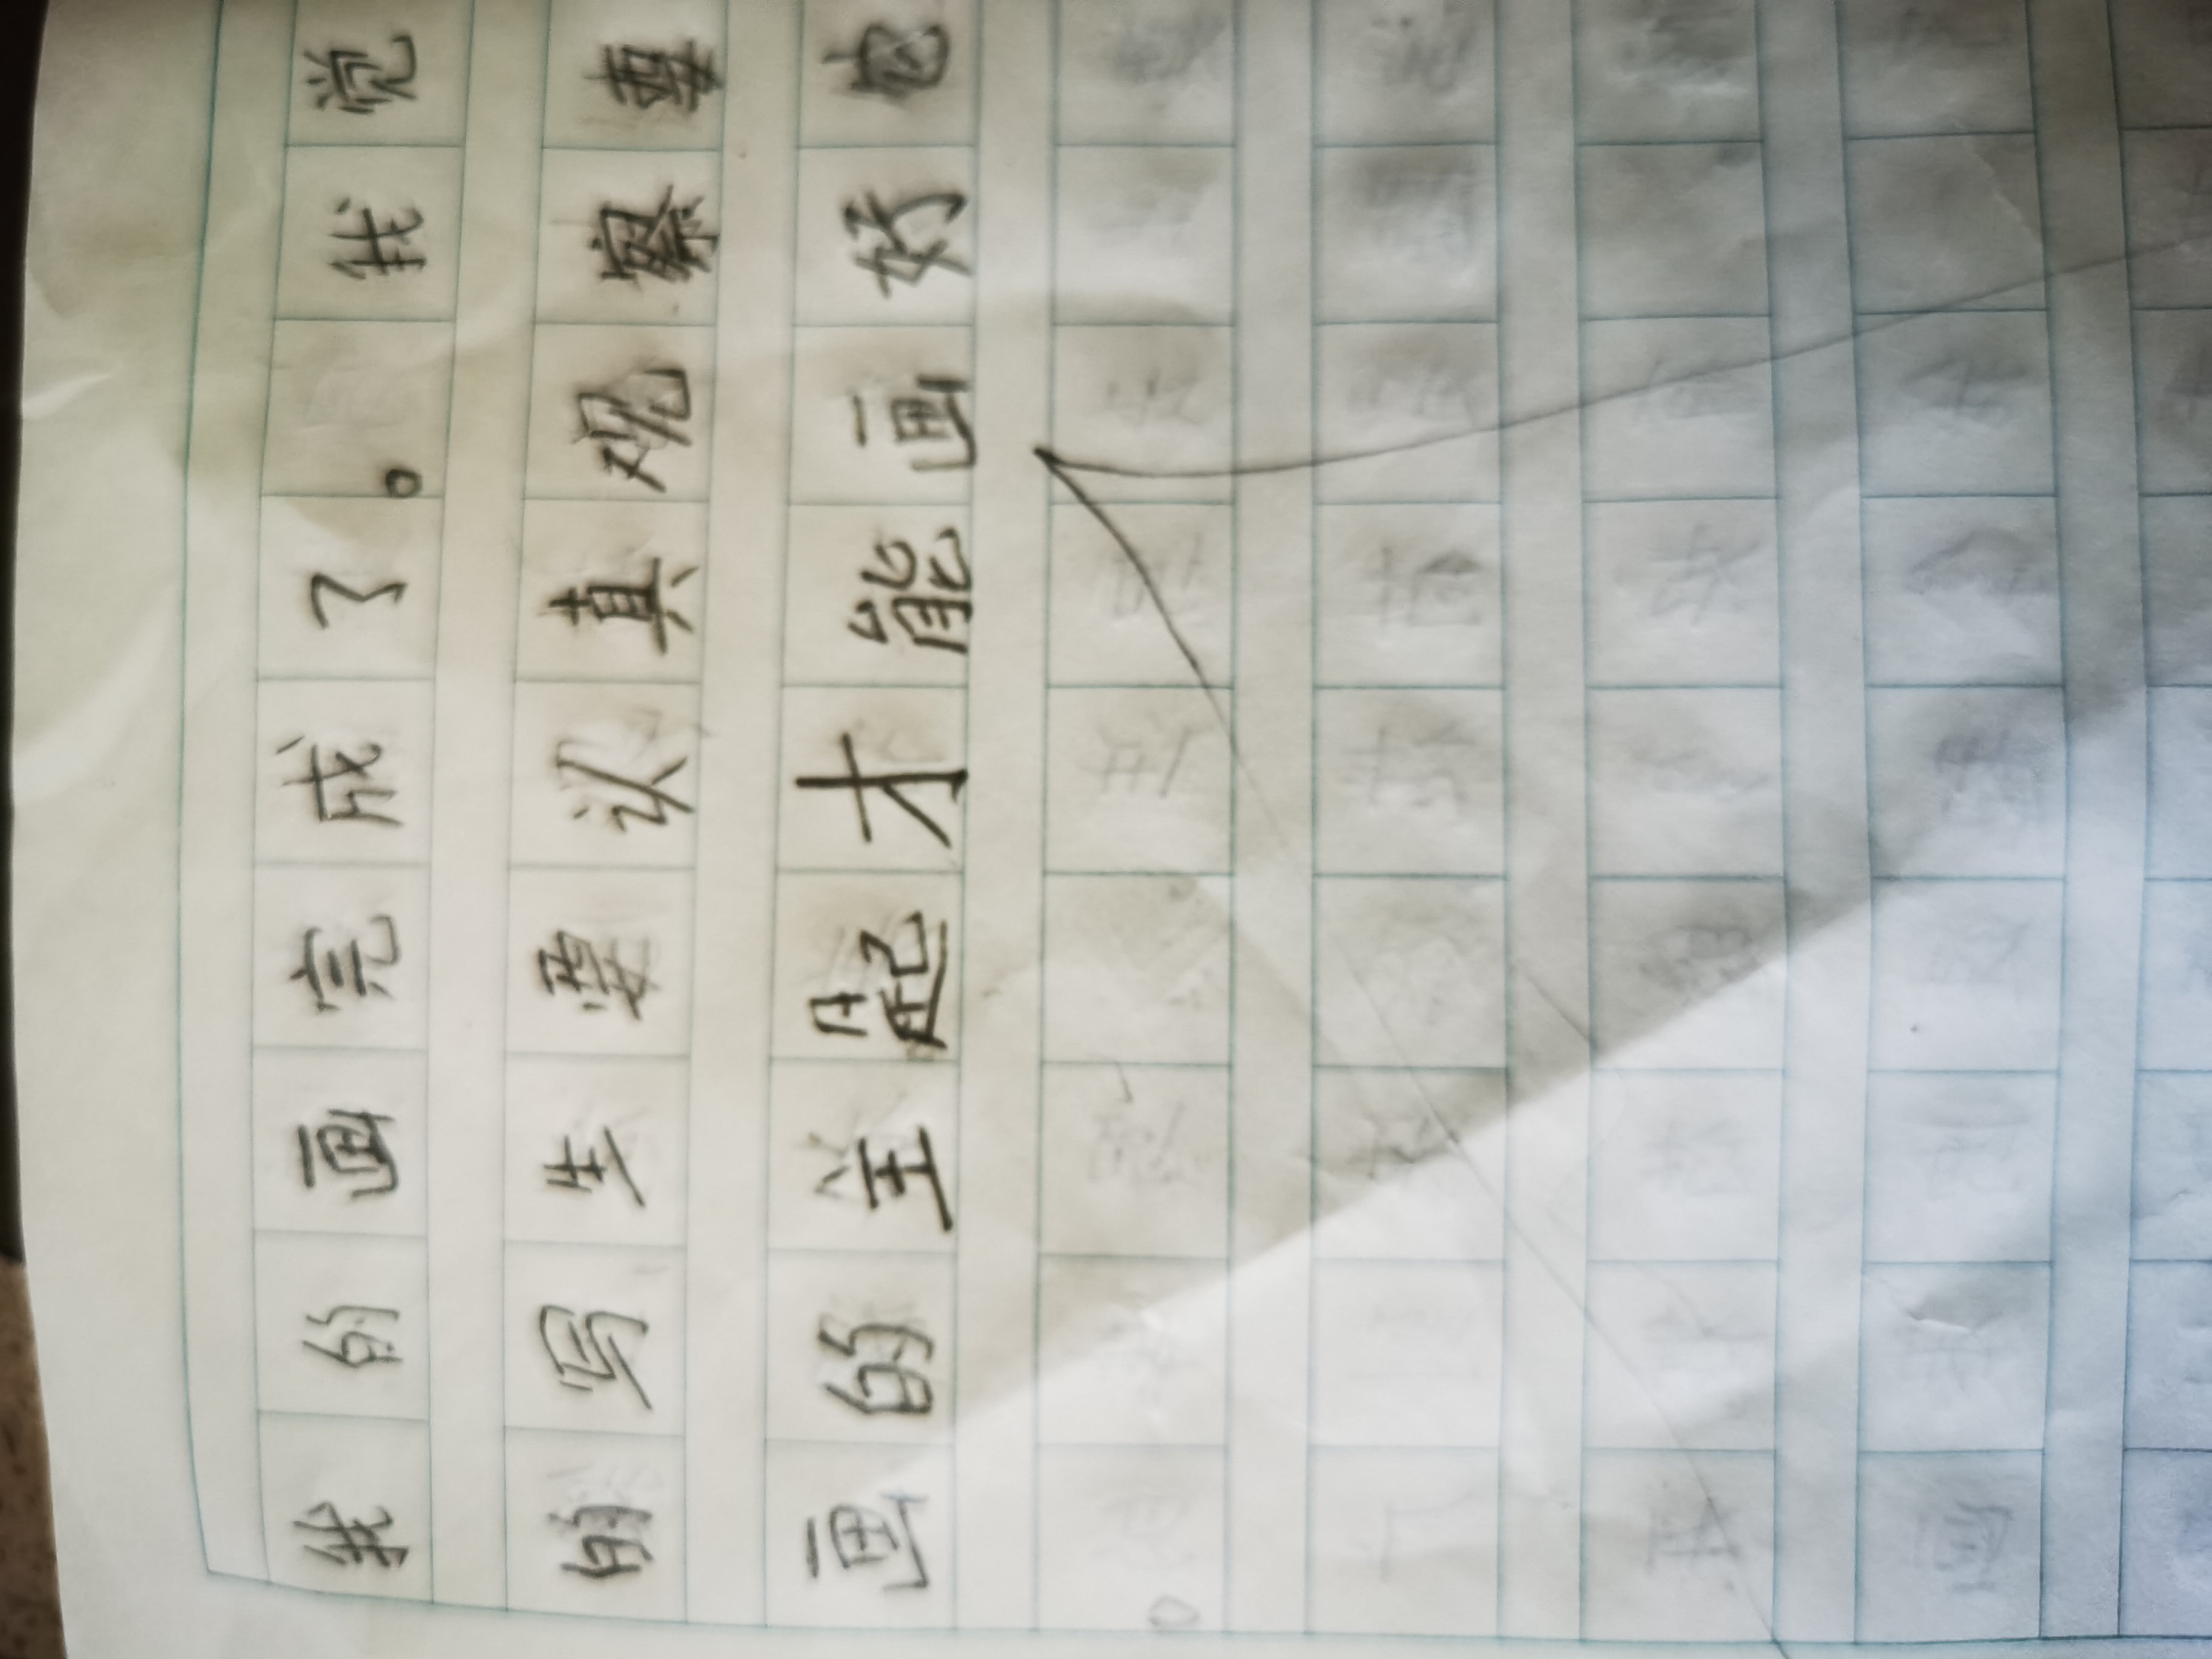 我的画完成了。我觉
的写生要认真观察
画的主才能画好